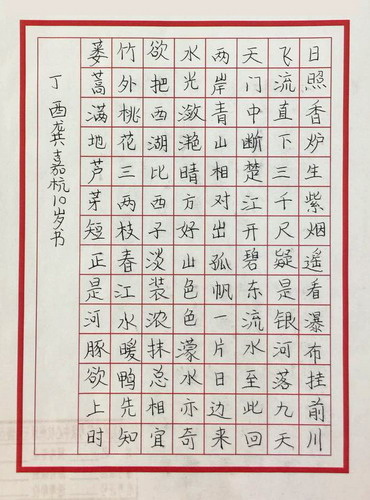 日照香炉生紫烟遥看瀑布挂前川
飞流直下三千尺疑是银河落九天
天门中断楚江开碧东流水至此回
两岸青山相对出孤帆一片日边来
水光潋滟晴方好山色色濛水亦奇
欲把西湖比西子淡装浓抹总相宜
竹外桃花三两枝春江水暖鸭先知
蒌蒿满地芦芽短正是河豚欲上时
丁酉龚嘉杭10岁书